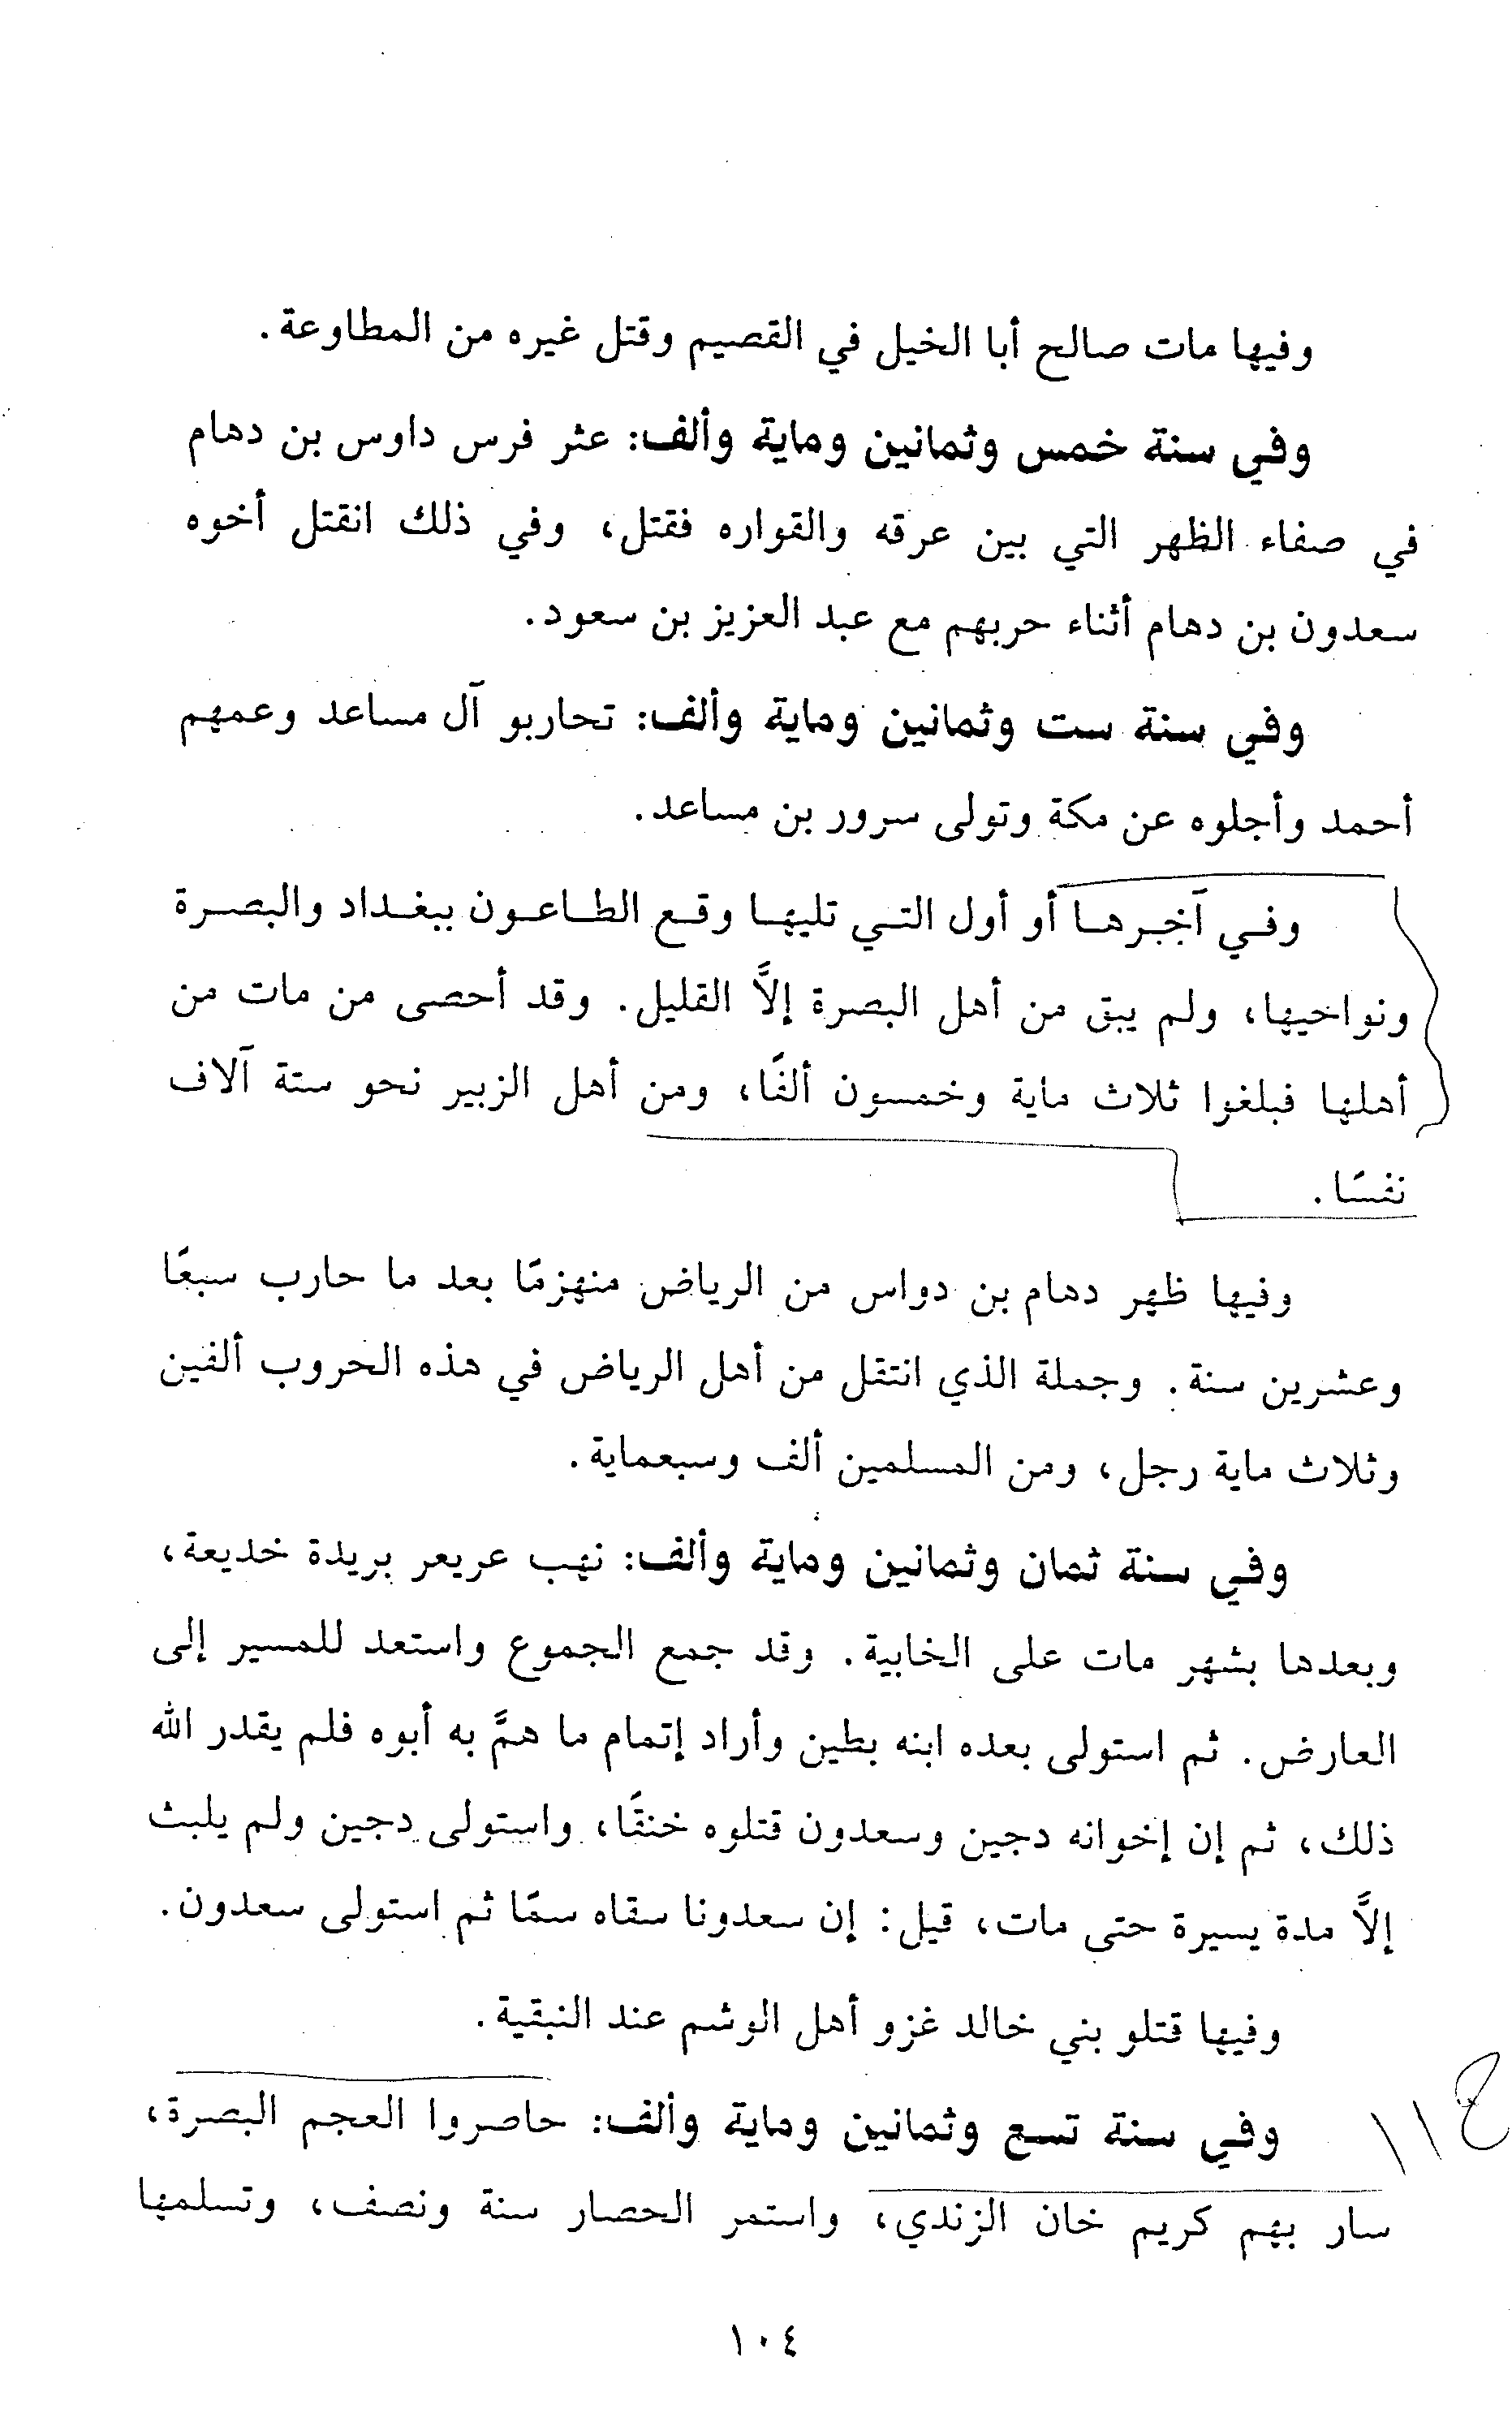 وفيها مات صالح أبا الخيل في القصيم وقتل غيره من المطاوعة.
وفي سنة خمس وثمانين وماية وألف: عثر فرس داوس بن دهام
في صفاء الظهر التي بين عرقه والقواره فقتل، وفي ذلك انقتل أخوه
سعدون بن دهام أثناء حربهم مع عبد العزيز بن سعود.
وفي سنة ست وثمانين وماية وألف: تحاربو آل مساعد وعمهم
أحمد وأجلوه عن مكة وتولى سرور بن مساعد.
وفي آخرها أو أول التي تليها وقع الطاعون ببغداد والبصرة
ونواحيها، ولم يبق من أهل البصرة إلاَّ القليل. وقد أحصى من مات من
أهلها فبلغوا ثلاث ماية وخمسون ألفًا، ومن أهل الزبير نحو ستة آلاف
نفسًا.
وفيها ظهر دهام بن دواس من الرياض منهزمًا بعد ما حارب سبعًا
وعشرين سنة. وجملة الذي انتقل من أهل الرياض في هذه الحروب ألفين
وثلاث ماية رجل، ومن المسلمين ألف وسبعماية.
وفي سنة ثمان وثمانين وماية وألف: نهب عريعر بريدة خديعة،
وبعدها بشهر مات على الخابية. وقد جمع الجموع واستعد للمسير إلى
العارض. ثم استولى بعده ابنه بطين وأراد إتمام ما همَّ به أبوه فلم يقدر الله
ذلك، ثم إن إخوانه دجين وسعدون قتلوه خنقًا، واستولى دجين ولم يلبث
إلاَّ مدة يسيرة حتى مات، قيل: إن سعدونا سقاه سمًا ثم استولى سعدون.
وفيها قتلو بني خالد غزو أهل الوشم عند النبقية.
وفي سنة تسع وثمانين وماية وألف: حاصروا العجم البصرة،
سار بهم كريم خان الزندي، واستمر الحصار سنة ونصف، وتسلمها
١٠٤